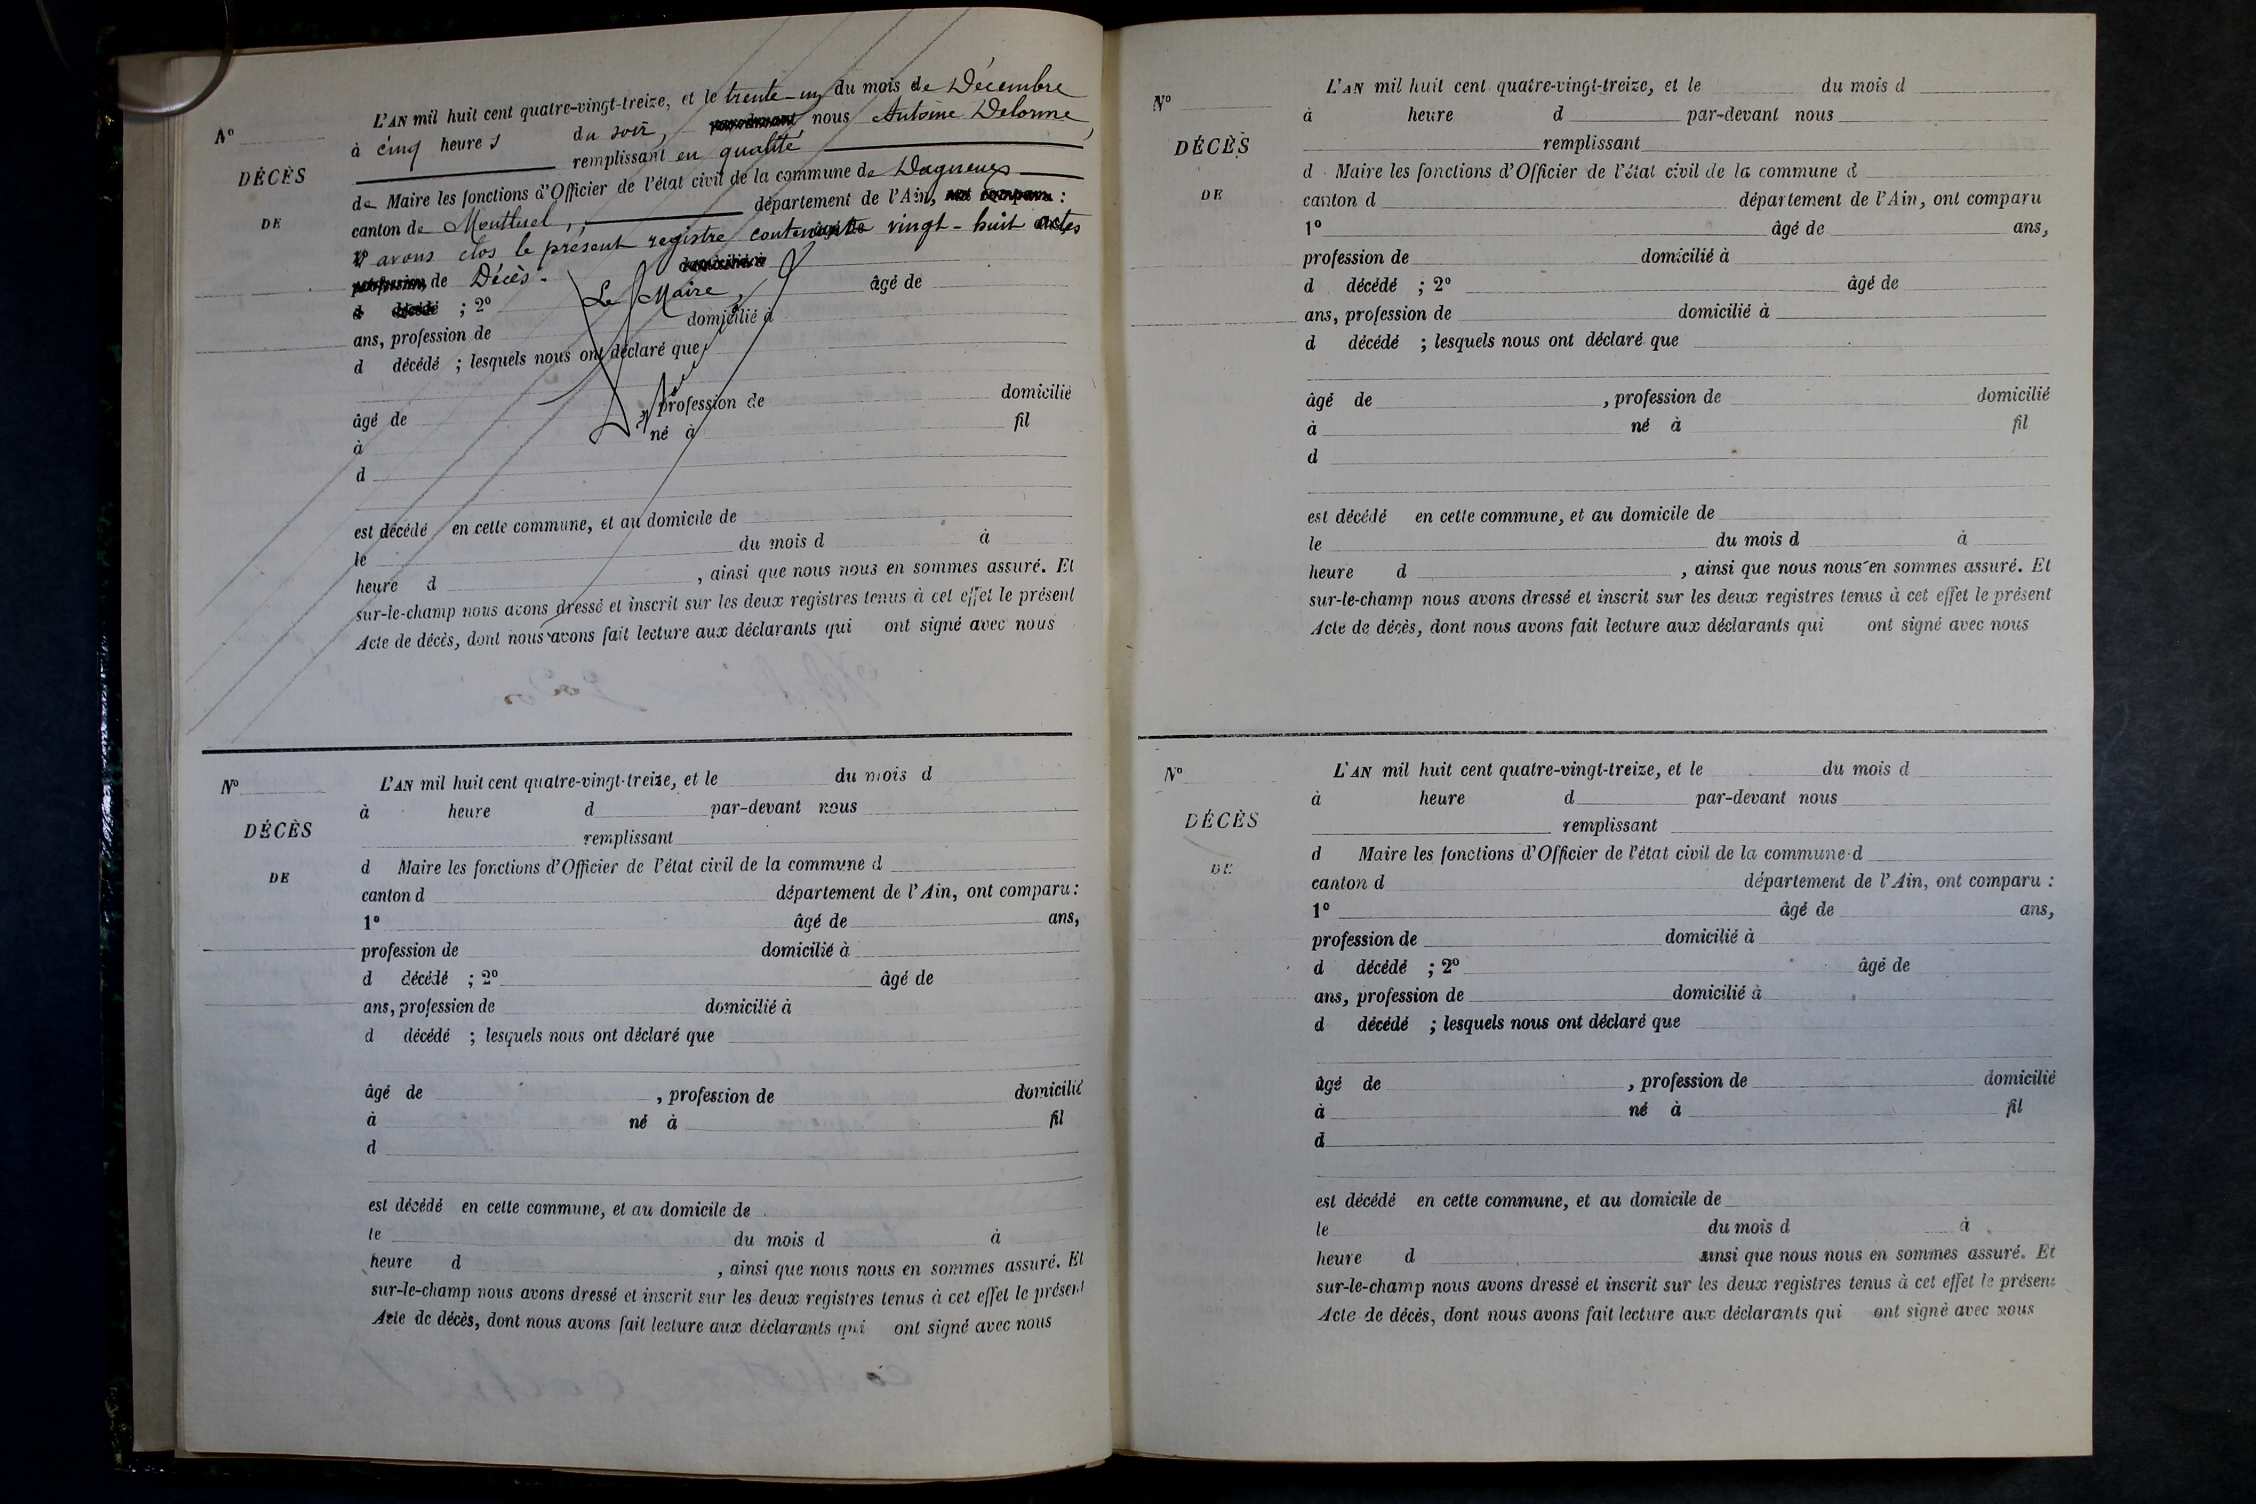 L'AN mil huit cent quatre-vingt-treize, et le trente-un du mois de Décembre
à cinq heures du soir, par-devant nous Antoine Delorme,
remplissant en qualité
de Maire les fonctions d'Officier de l'état civil de la commune de Dagneux
canton de Montluel, département de l'Ain, ont comparu :
avons clos le présent registre contenant vingt-huit actes
profession de Décès. domicilié à
d décédé ; 2º Le Maire, âgé de
ans, profession de domicilié à
d décédé ; lesquels nous ont déclaré que
Nº
DÉCÈS
DE
âgé de , profession de domicilié
à né à fil
d
est décédé en cette commune, et au domicile de
le du mois d à
heure d , ainsi que nous nous en sommes assuré. Et
sur-le-champ nous avons dressé et inscrit sur les deux registres tenus à cet effet le présent
Acte de décès, dont nous avons fait lecture aux déclarants qui ont signé avec nous
Nº
DÉCÈS
DE
L'AN mil huit cent quatre-vingt-treize, et le du mois d
à heure d par-devant nous
remplissant
d Maire les fonctions d'Officier de l'état civil de la commune d
canton d département de l'Ain, ont comparu :
1º âgé de ans,
profession de domicilié à
d décédé ; 2º âgé de
ans, profession de domicilié à
d décédé ; lesquels nous ont déclaré que
âgé de , profession de domicilié
à né à fil
d
est décédé en cette commune, et au domicile de
le du mois d à
heure d , ainsi que nous nous en sommes assuré. Et
sur-le-champ nous avons dressé et inscrit sur les deux registres tenus à cet effet le présent
Acte de décès, dont nous avons fait lecture aux déclarants qui ont signé avec nous
Nº
DÉCÈS
DE
L'AN mil huit cent quatre-vingt-treize, et le du mois d
à heure d par-devant nous
remplissant
d Maire les fonctions d'Officier de l'état civil de la commune d
canton d département de l'Ain, ont comparu
1º âgé de ans,
profession de domicilié à
d décédé ; 2º âgé de
ans, profession de domicilié à
d décédé ; lesquels nous ont déclaré que
âgé de , profession de domicilié
à né à fil
d
est décédé en cette commune, et au domicile de
le du mois d à
heure d , ainsi que nous nous en sommes assuré. Et
sur-le-champ nous avons dressé et inscrit sur les deux registres tenus à cet effet le présent
Acte de décès, dont nous avons fait lecture aux déclarants qui ont signé avec nous
Nº
DÉCÈS
DE
L'AN mil huit cent quatre-vingt-treize, et le du mois d
à heure d par-devant nous
remplissant
d Maire les fonctions d'Officier de l'état civil de la commune d
canton d département de l'Ain, ont comparu :
1º âgé de ans,
profession de domicilié à
d décédé ; 2º âgé de
ans, profession de domicilié à
d décédé ; lesquels nous ont déclaré que
âgé de , profession de domicilié
à né à fil
d
est décédé en cette commune, et au domicile de
le du mois d à
heure d ainsi que nous nous en sommes assuré. Et
sur-le-champ nous avons dressé et inscrit sur les deux registres tenus à cet effet le présent
Acte de décès, dont nous avons fait lecture aux déclarants qui ont signé avec nous